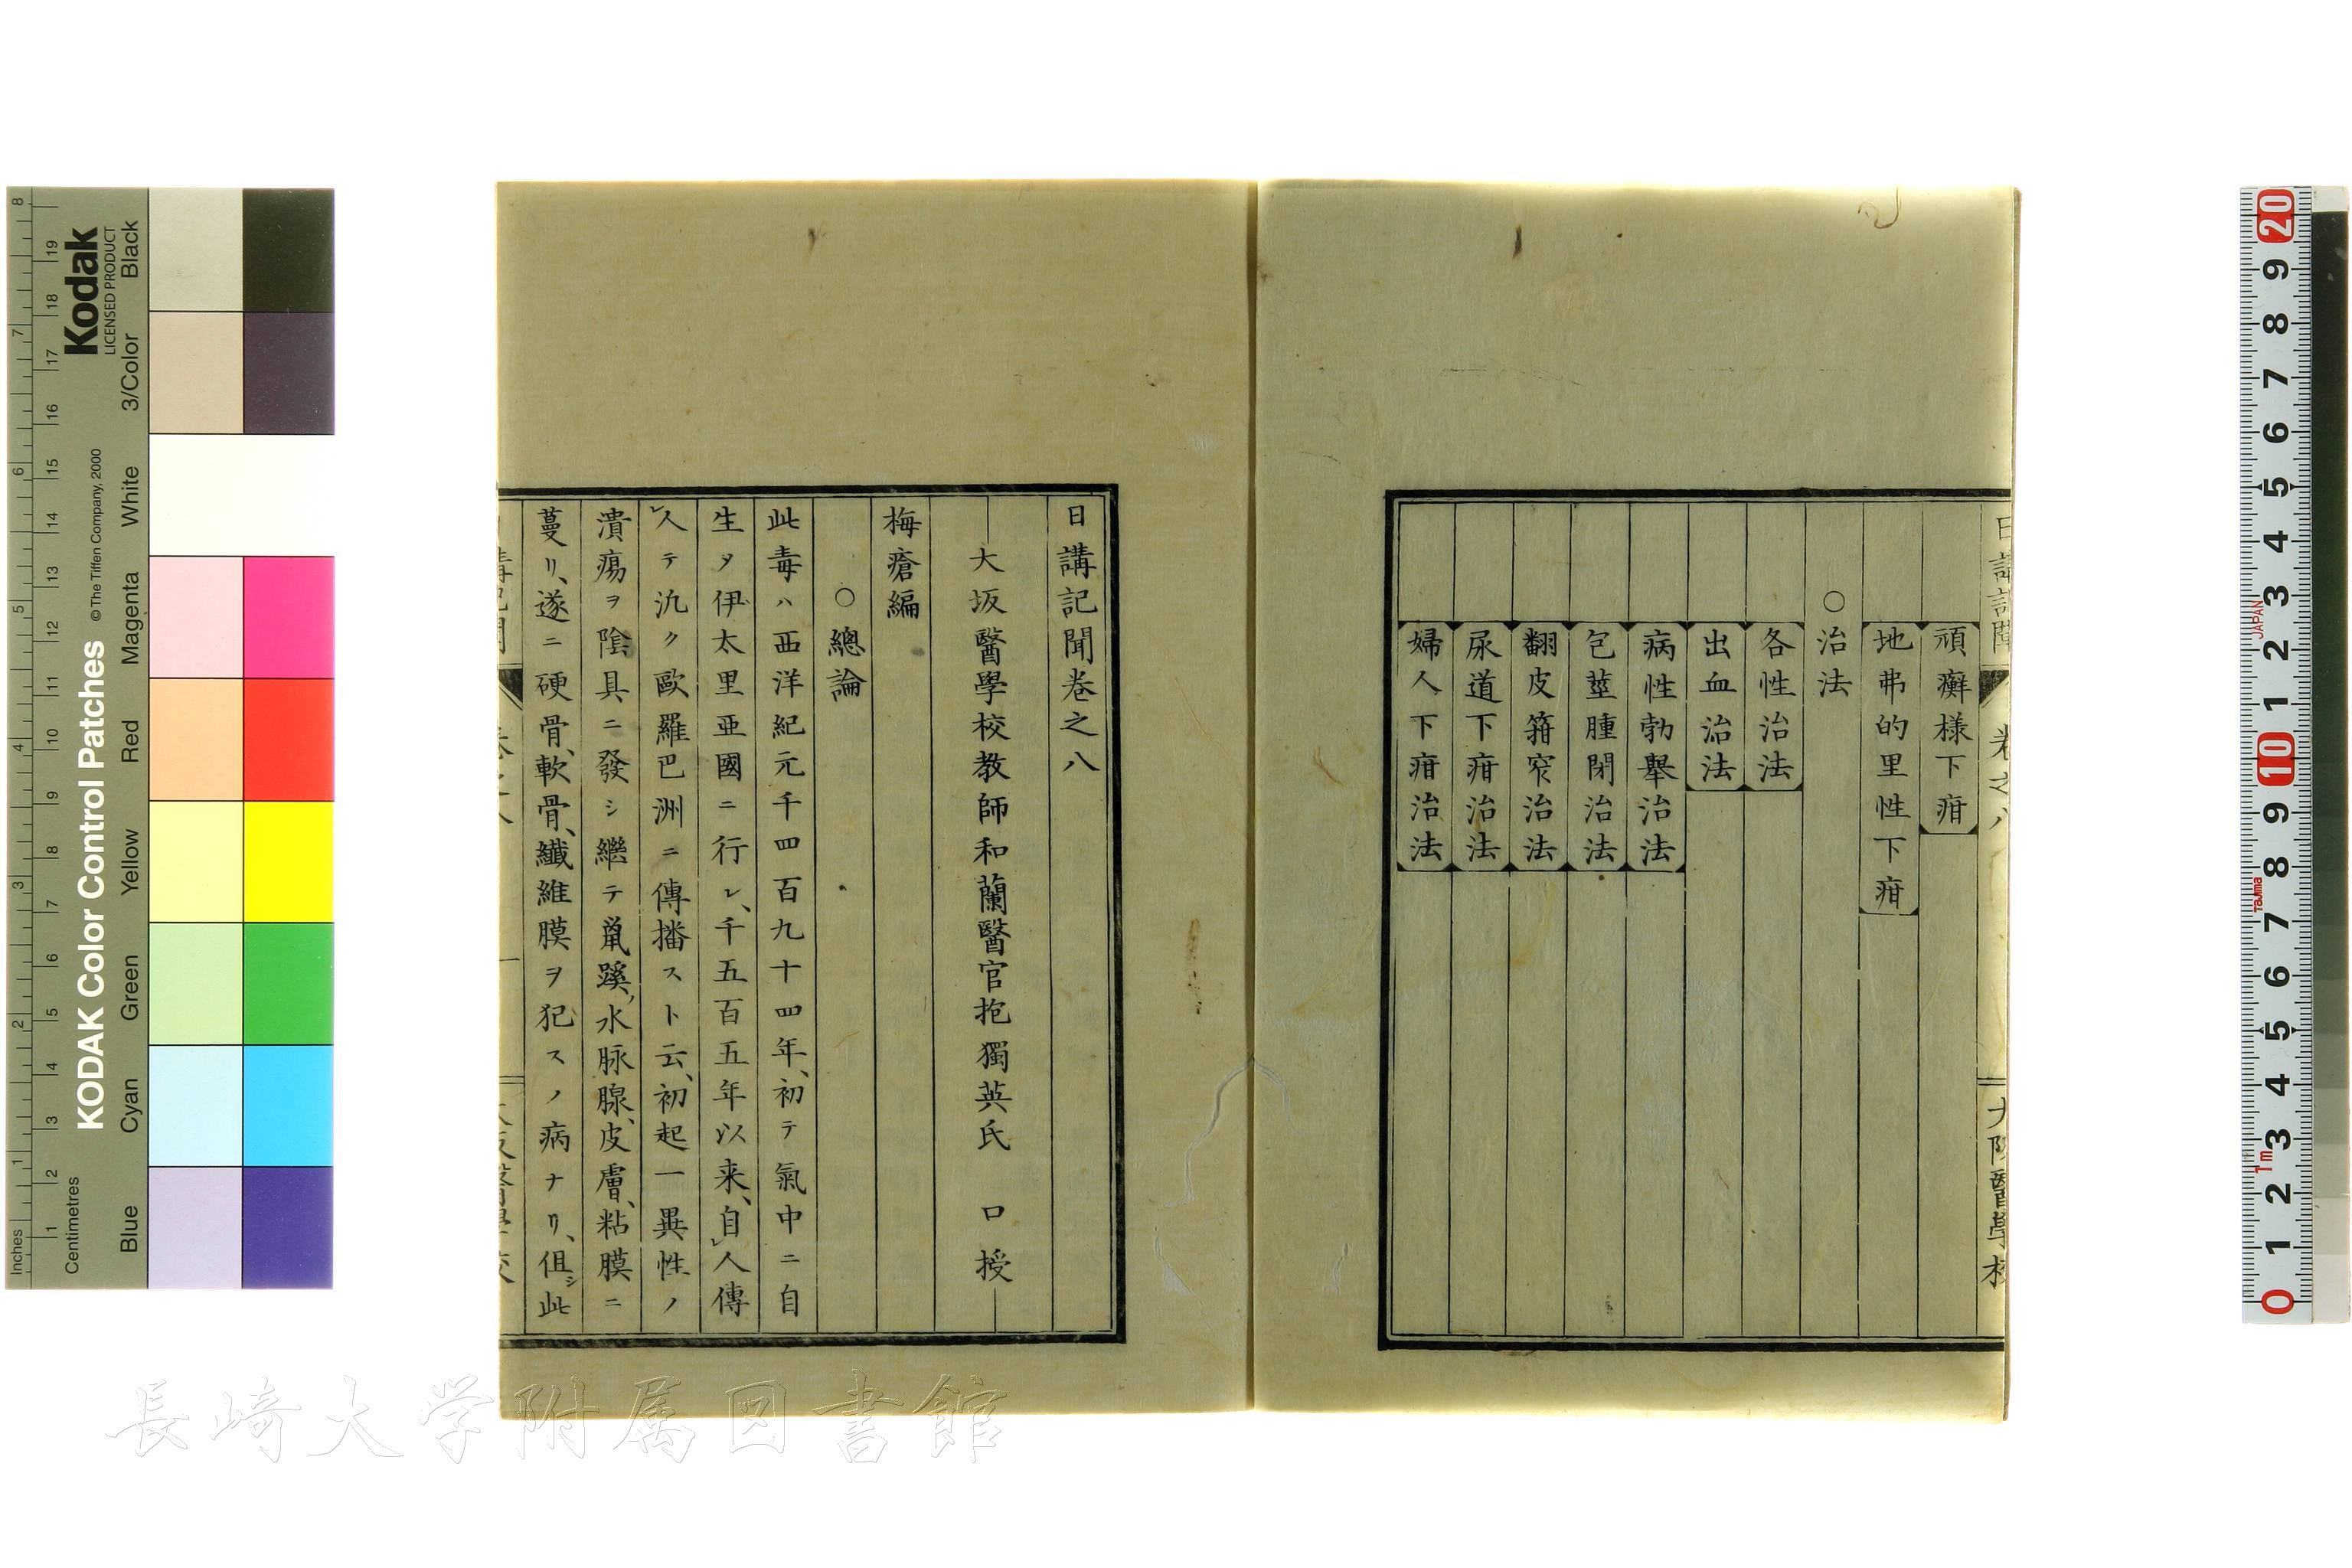 頑癬樣下疳
地弗的里性下疳
○治法
各性治法
出血治法
病性勃舉治法
包莖腫閉治法
翻皮箝窄治法
尿道下疳治法
婦人下疳治法
日講記聞卷之八
大坂醫學校教師和蘭醫官抱獨英氏 口授
梅瘡編
○總論
此毒ハ西洋紀元千四百九十四年、初テ氣中ニ自
生タ伊太里亞國ニ行レ、千五百五年以来、自人傳
人テ氿ク歐羅巴洲ニ傳播スト云、初起一異性ノ
潰瘍ヲ陰具ニ發シ繼テ鼠蹊、水脉腺、皮膚、粘膜ニ
蔓リ、遂ニ硬骨、軟骨、纖維膜ヲ犯スノ病ナリ、但シ此
長崎大学附属図書館
KODAK Color Control Patches
© The Tiffen Company, 2000
Kodak
LICENSED PRODUCT
Inches
Centimetres
Blue
Cyan
Green
Yellow
Red
Magenta
White
3/Color
Black
JAPAN
Tajima
1m